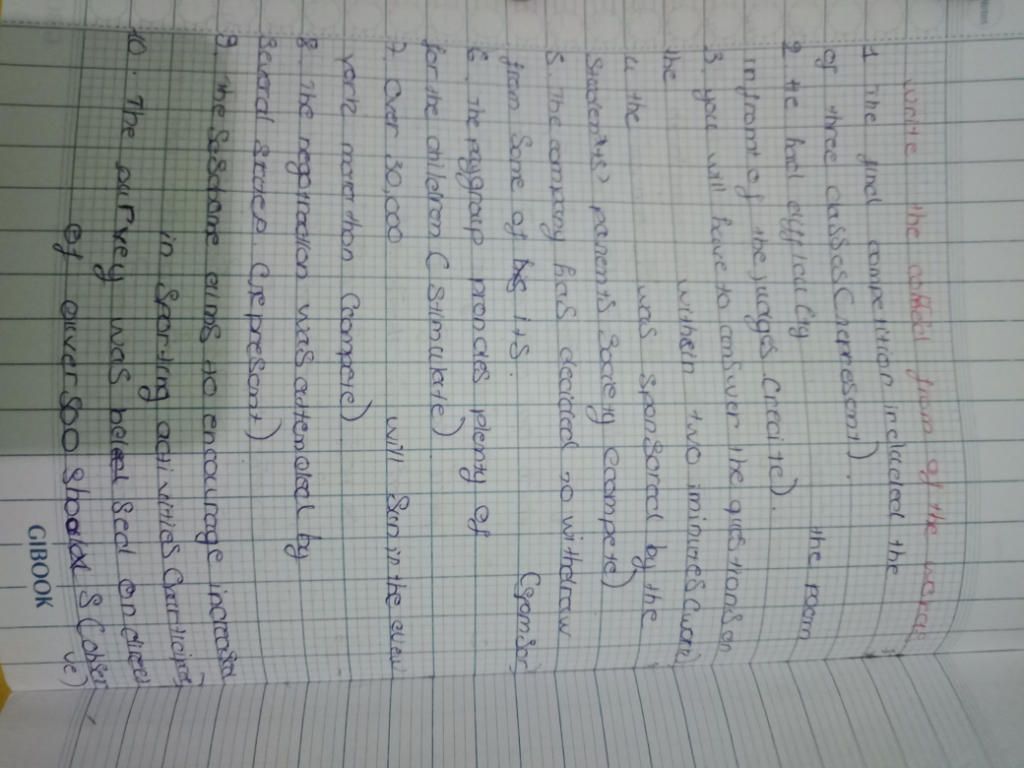 write the correct from of the words
1 The final competition included the
of three classes (represent).
2 the had difficulty the room
infront of the judges (recite).
3 you will have to answer the questions on
the within two iminutes (
4 the was sponsored by the
Students' parents Society (compete)
5. The company has decided to withdraw
from some of its. (sponsor)
6 The paygroup provides plenty of
for the children (stimulate)
7. Over 30,000 will Sun in the
york marathon (compete)
8 The negotiation was attended by
several states (represent)
9 the sessome aims to encourage
in sporting activities (
10. The purvey was beleed on
of over 500 S (obser
ve)
GIBOOK